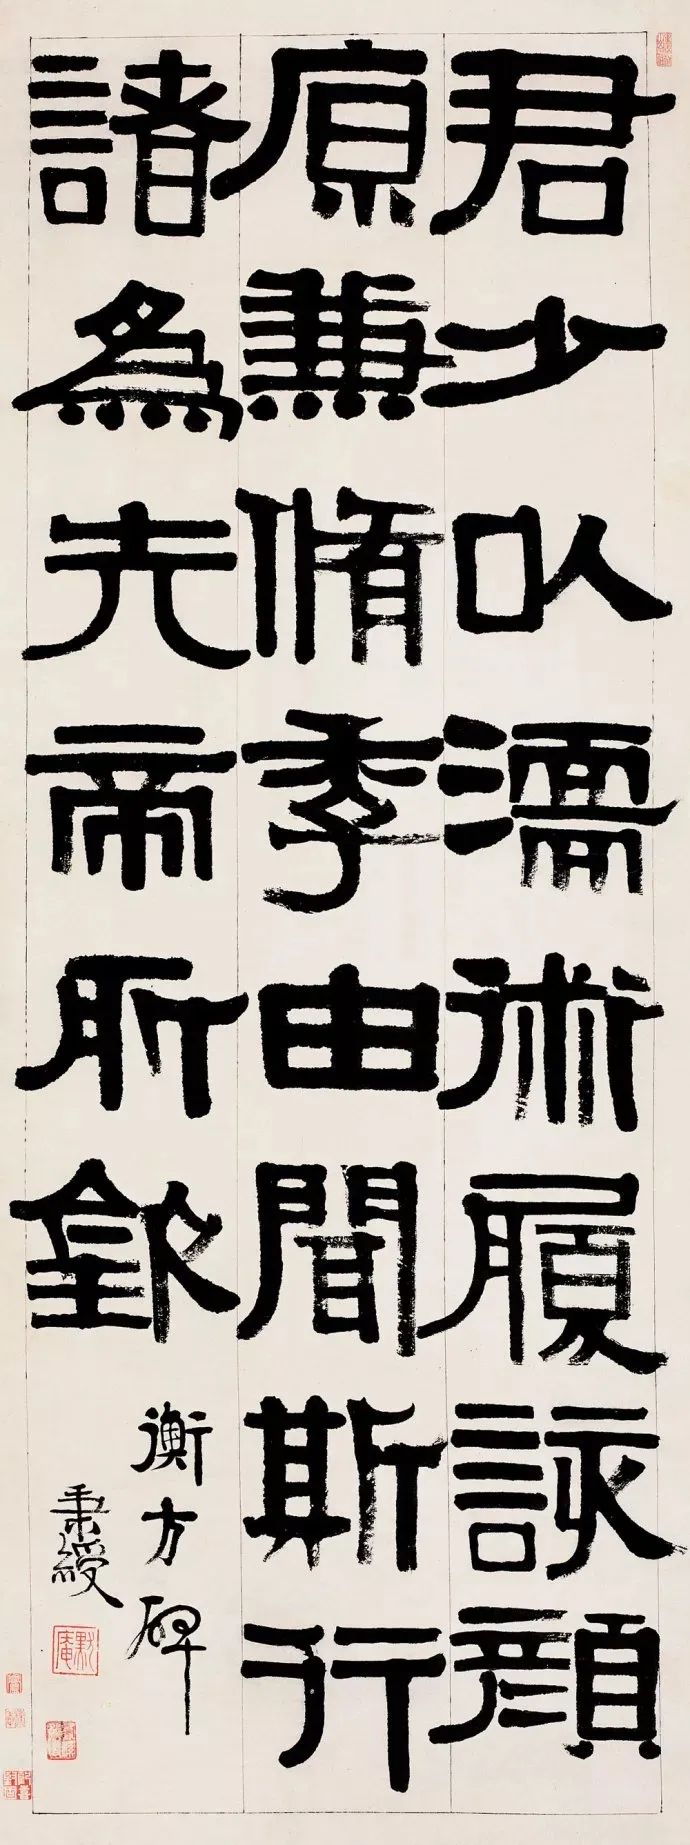 君少以濡術履該顔
原兼脩季由聞斯行
諸為先帝所欽
衡方碑
秉綬
默庵